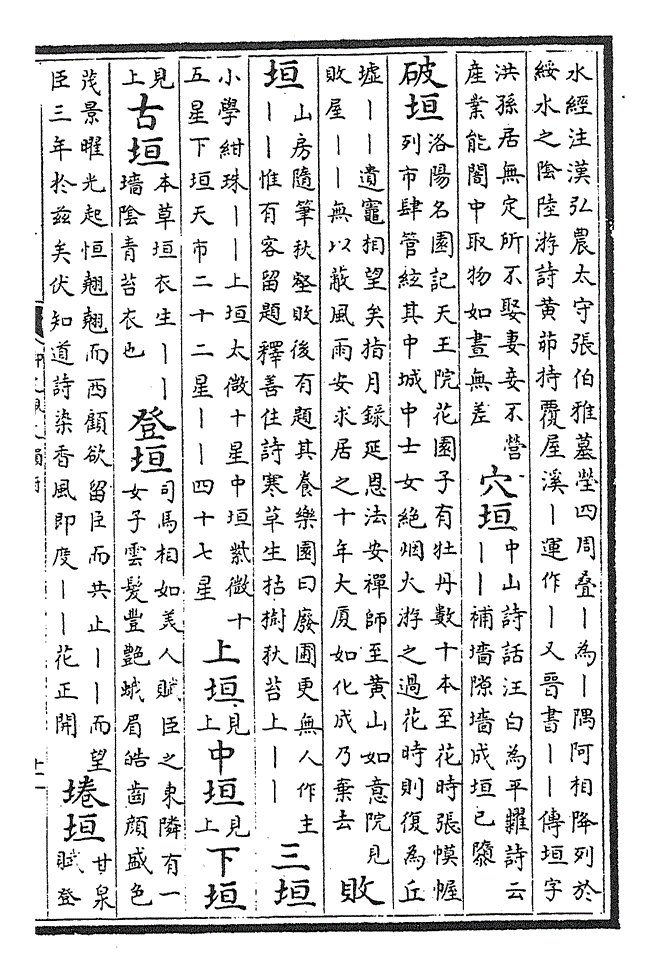 水經注漢弘農太守張伯雅墓塋四周叠丨為丨隅阿相降列於
綏水之隂陸游詩黄茆持覆屋溪丨運作丨又晉書丨丨傳垣字
洪孫居無定所不娶妻妾不營
產業能闇中取物如晝無差
穴垣
中山詩話汪白為平糶詩云
丨丨補墻隙墻成垣已隳
破垣
洛陽名園記天王院花園子有牡丹數十本至花時張幙幄
列市肆管絃其中城中士女絶烟火游之過花時則復為丘
墟丨丨遺竈相望矣指月録延恩法安禪師至黄山如意院見
敗屋丨丨無以蔽風雨安求居之十年大厦如化成乃棄去
敗
垣
山房隨筆秋壑敗後有題其養樂園曰廢圃更無人作主
丨丨惟有客留題釋善住詩寒草生枯樹秋苔上丨丨
三垣
小學紺珠丨丨上垣太微十星中垣紫微十
五星下垣天市二十二星丨丨四十七星
上垣
見上
中垣
見上
下垣
見上
古垣
本草垣衣生丨丨
墻陰青苔衣也
登垣
司馬相如美人賦臣之東隣有一
女子雲髮豐艷蛾眉皓齒顔盛色
茂景曜光起恒翹翹而西顧欲留臣而共止丨丨而望
臣三年於兹矣伏知道詩染香風即度丨丨花正開
埢垣
甘泉
賦登